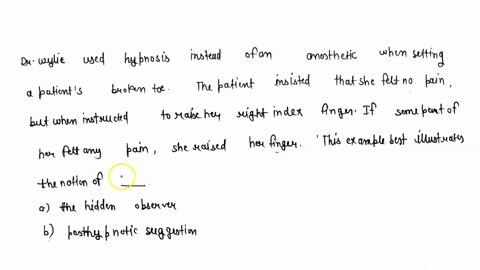 Dr. Wylie used hypnosis instead of an anosthetic when setting
a patient's broken toe. The patient insisted that she felt no pain,
but when instructed to raise her right index finger. If some part of
her felt any pain, she raised her finger. This example best illustrates
the notion of ____.
a) the hidden observer
b) posthypnotic suggestion